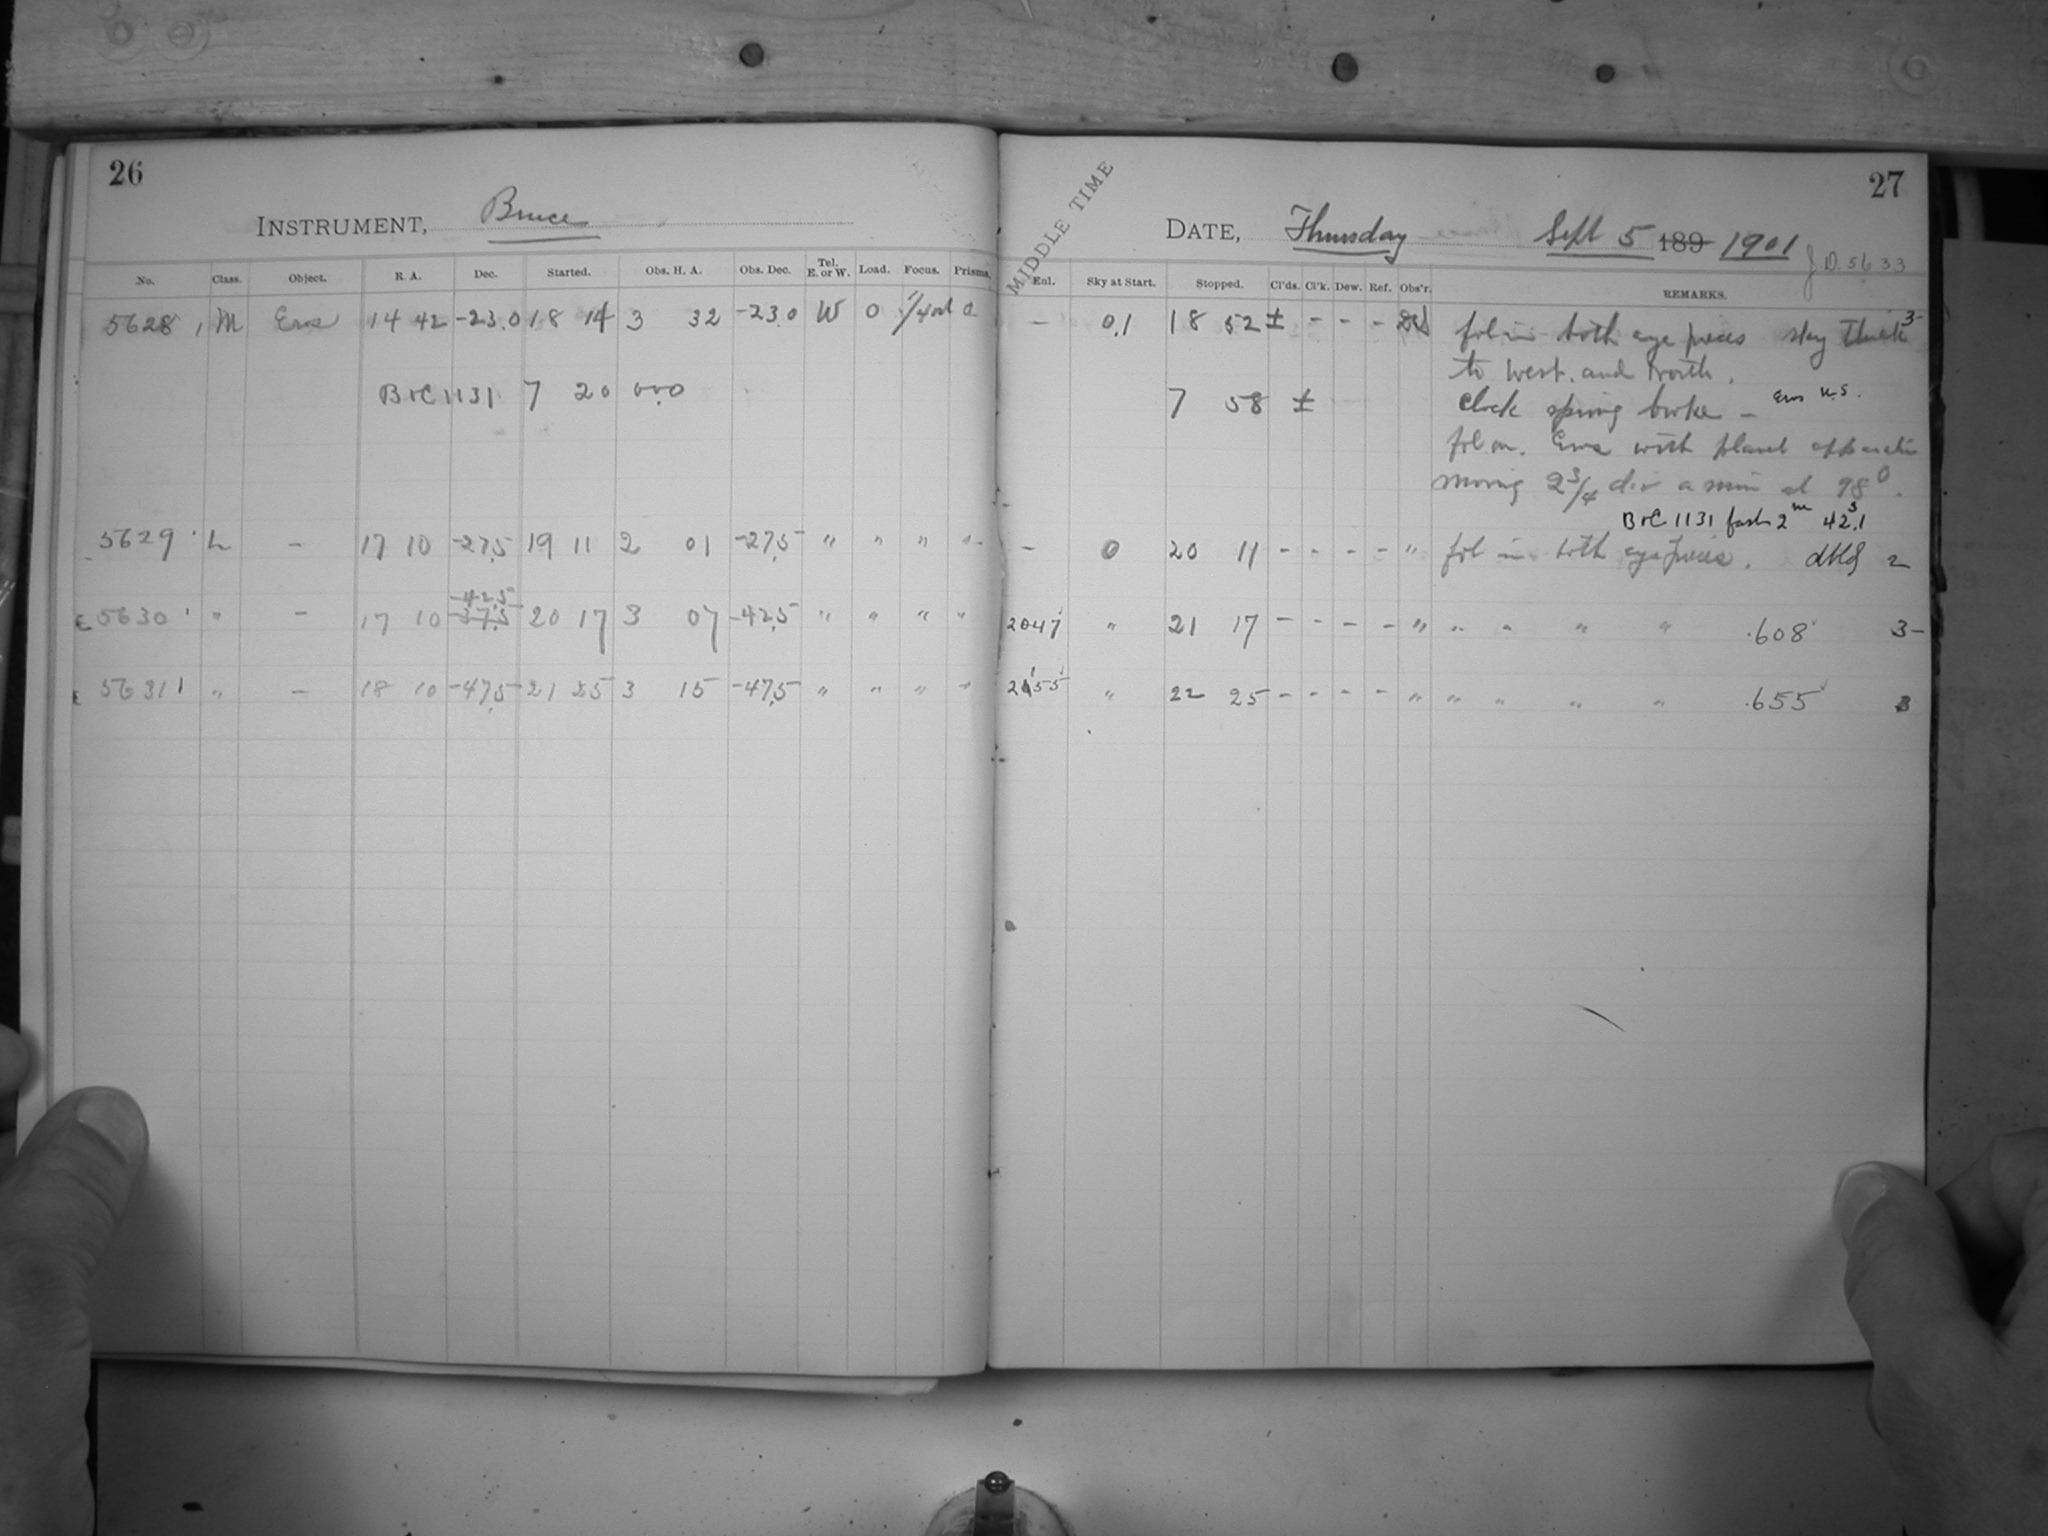 26
INSTRUMENT, Bruce
No. Class. Object. R. A. Dec. Started. Obs. H. A. Obs. Dec. Tel. E. or W. Load. Focus. Prisms.
5628 M Eros 14 42 -23.0 18 14 3 32 -23.0 W 0 0
B&C 1131 7 20 00.0
5629 L - 17 10 -27.5 19 11 2 01 -27.5 " " " "
-42.5
5630 " - 17 10 -37.5 20 17 3 07 -42.5 " " " "
5631 " - 18 10 -47.5 21 25 3 15 -47.5 " " " "
27
MIDDLE TIME
DATE, Thursday Sept 5 189 1901
J.D. 5633
Enl. Sky at Start. Stopped. Cl'ds. Cl'k. Dew. Ref. Obs'r. REMARKS.
- 0.1 18 52 ± - - - fol in both eye pieces sky thick 3-
to West. and North.
7 58 ± Clock spring broke - Eros U.S.
fol on. Eros with planet
moving 2 3/4 div a min at 98°.
B&C 1131 fast 2m 42s.1
- 0 20 11 - - - - " fol in both eye pieces. 2
2047 " 21 17 - - - - " " " " " .608 3-
2155 " 22 25 - - - - " " " " " .655 3